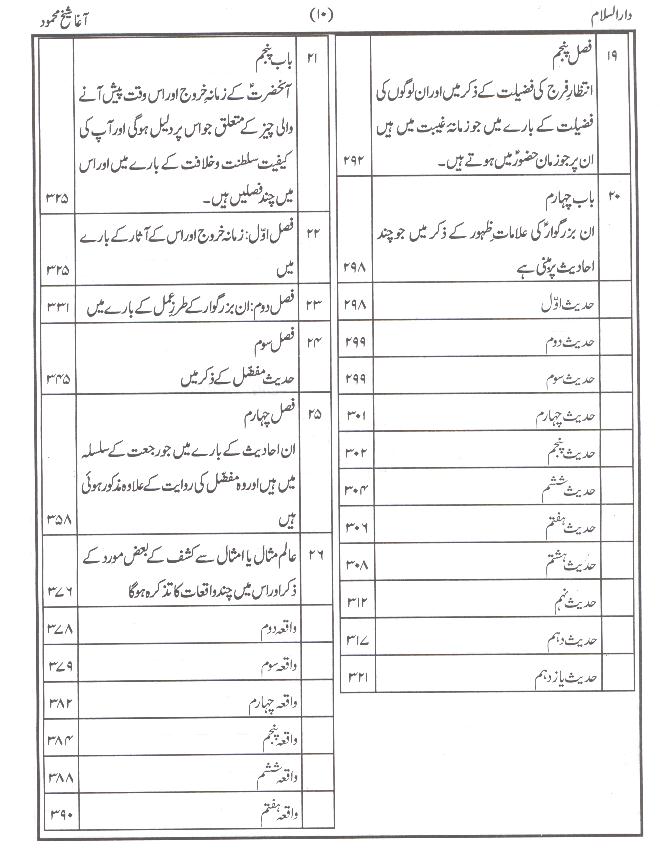 دارالسلام (۱۰) آغا شیخ محمود
۱۹ فصل پنجم
انتظارِ فرج کی فضیلت کے ذکر میں اور ان لوگوں کی
فضیلت کے بارے میں جو زمانۂ غیبت میں ہیں
ان پر جو زمان حضورؑ میں ہوتے ہیں۔ ۲۹۲
۲۰ باب چہارم
ان بزرگوارؑ کی علاماتِ ظہور کے ذکر میں جو چند
احادیث پر مبنی ہے ۲۹۸
حدیث اوّل ۲۹۸
حدیث دوم ۲۹۹
حدیث سوم ۲۹۹
حدیث چہارم ۳۰۱
حدیث پنجم ۳۰۲
حدیث ششم ۳۰۴
حدیث ہفتم ۳۰۶
حدیث ہشتم ۳۰۸
حدیث نہم ۳۱۲
حدیث دہم ۳۱۷
حدیث یازدہم ۳۲۱
۲۱ باب پنجم
آنحضرتؑ کے زمانۂ خروج اور اس وقت پیش آنے
والی چیز کے متعلق جو اس پر دلیل ہوگی اور آپ کی
کیفیت سلطنت و خلافت کے بارے میں اور اس
میں چند فصلیں ہیں۔ ۳۲۵
۲۲ فصل اوّل: زمانہ خروج اور اس کے آثار کے بارے
میں ۳۲۵
۲۳ فصل دوم: ان بزرگوار کے طرزِ عمل کے بارے میں ۳۳۱
۲۴ فصل سوم
حدیث مفضّل کے ذکر میں ۳۴۵
۲۵ فصل چہارم
ان احادیث کے بارے میں جو رجعت کے سلسلہ
میں ہیں اور وہ مفضّل کی روایت کے علاوہ مذکور ہوئی
ہیں ۳۵۸
۲۶ عالم مثال یا امثال سے کشف کے بعض مورد کے
ذکر اور اس میں چند واقعات کا تذکرہ ہوگا ۳۷۶
واقعہ دوم ۳۷۸
واقعہ سوم ۳۷۹
واقعہ چہارم ۳۸۲
واقعہ پنجم ۳۸۴
واقعہ ششم ۳۸۸
واقعہ ہفتم ۳۹۰